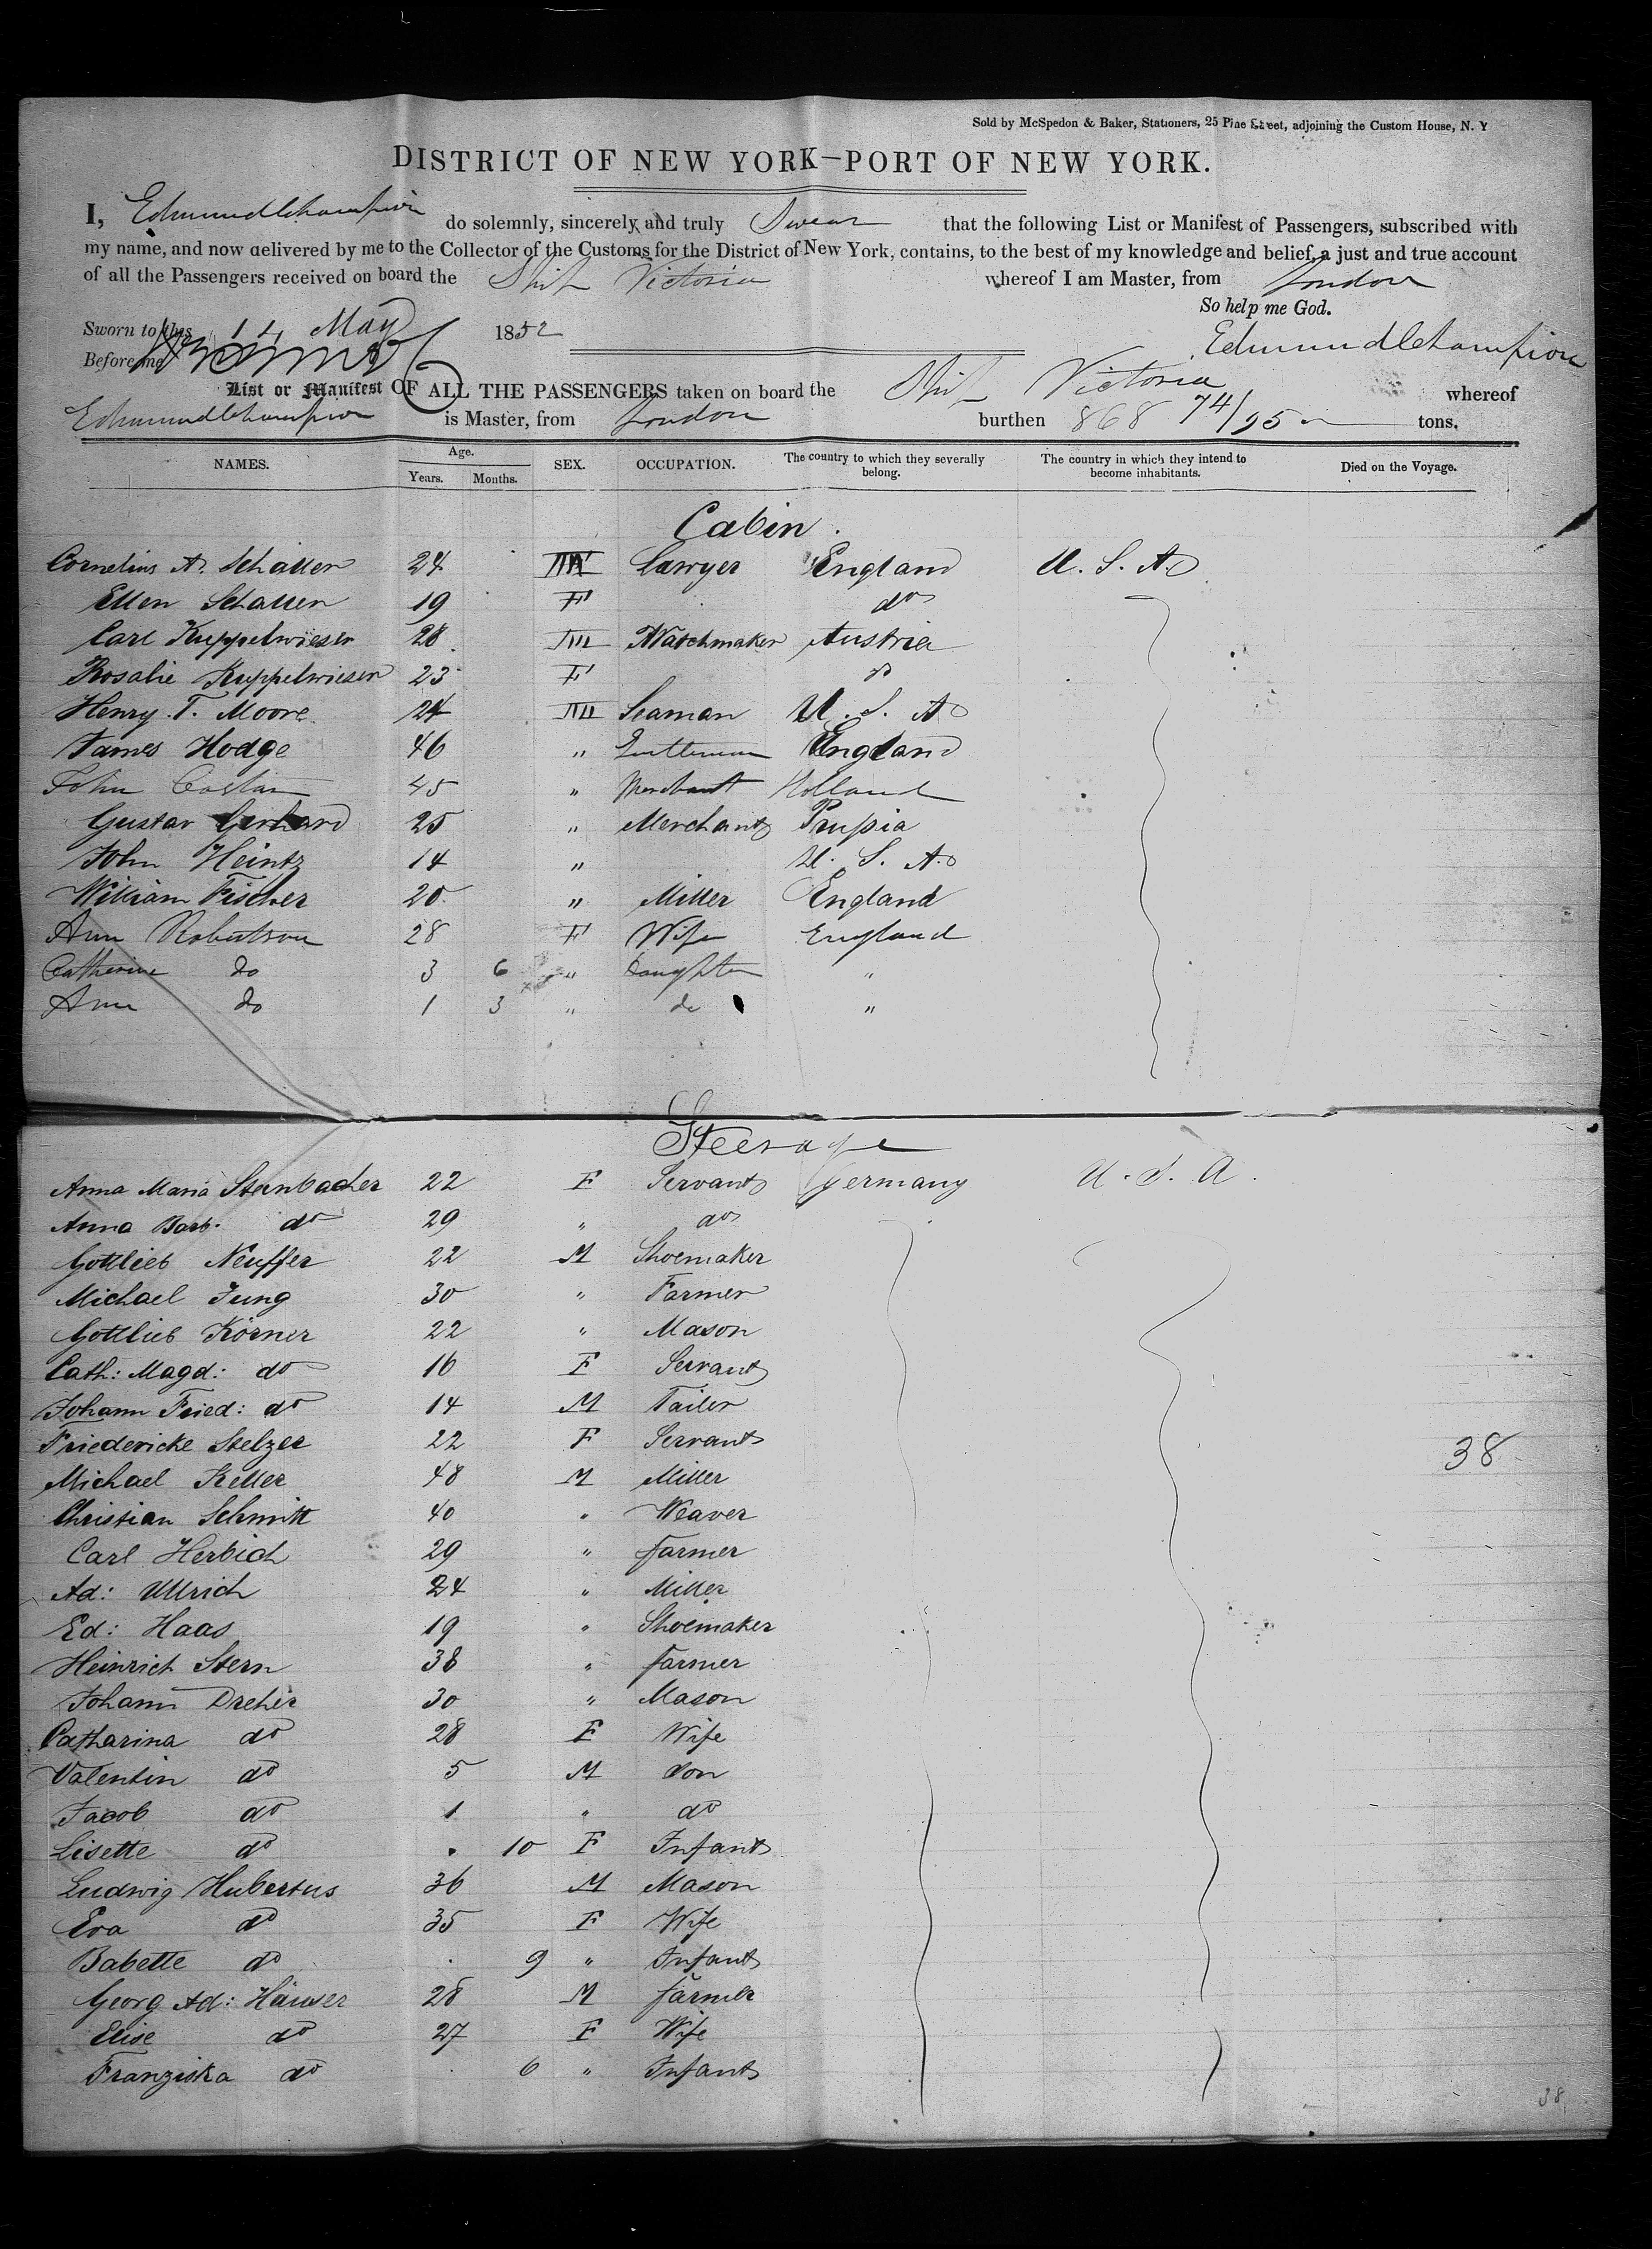 Sold by McSpedon & Baker, Stationers, 25 Pine Street, adjoining the Custom House, N. Y
DISTRICT OF NEW YORK—PORT OF NEW YORK.
I, Edmund Champion do solemnly, sincerely and truly Swear that the following List or Manifest of Passengers, subscribed with
my name, and now delivered by me to the Collector of the Customs for the District of New York, contains, to the best of my knowledge and belief, a just and true account
of all the Passengers received on board the Ship Victoria whereof I am Master, from London
So help me God.
Sworn to this 14 May 1852
Edmund Champion
Before me
List or Manifest OF ALL THE PASSENGERS taken on board the Ship Victoria whereof
Edmund Champion is Master, from London burthen 868 74/95 tons.
NAMES. Age. Years. Months. SEX. OCCUPATION. The country to which they severally belong. The country in which they intend to become inhabitants. Died on the Voyage.
Cabin.
Cornelius A. Schaller 24 M Lawyer England U. S. A.
Ellen Schaller 19 F do
Carl Kuppelwieser 28 M Watchmaker Austria
Rosalie Kuppelwieser 23 F do
Henry T. Moore 24 M Seaman U. S. A.
James Hodge 46 " Gentleman England
John 45 " Merchant Holland
Gustav Gerhard 25 " Merchant Prussia
John Heintz 14 " U. S. A.
William Fischer 20 " Miller England
Ann Robertson 28 F Wife England
Catherine do 3 6 " Daughter "
Ann do 1 3 " do "
Steerage
Anna Maria Steinbacher 22 F Servant Germany U. S. A.
Anna Barb. do 29 " do
Gottlieb Neuffer 22 M Shoemaker
Michael Jung 30 " Farmer
Gottlieb Körner 22 " Mason
Cath: Magd: do 16 F Servant
Johann Fried: do 14 M Tailor
Friedericke Stelzer 22 F Servant
38
Michael Keller 48 M Miller
Christian Schmitt 40 " Weaver
Carl Herbich 29 " farmer
Ad: Ullrich 24 " Miller
Ed: Haas 19 " Shoemaker
Heinrich Stern 38 " farmer
Johann Dreher 30 " Mason
Catharina do 28 F Wife
Valentin do 5 M Son
Jacob do 1 " do
Lisette do . 10 F Infant
Ludwig Hubertus 36 M Mason
Eva do 35 F Wife
Babette do . 9 " Infant
Georg Ad: Häuser 28 M farmer
Elise do 27 F Wife
Franziska do . 6 " Infant
38